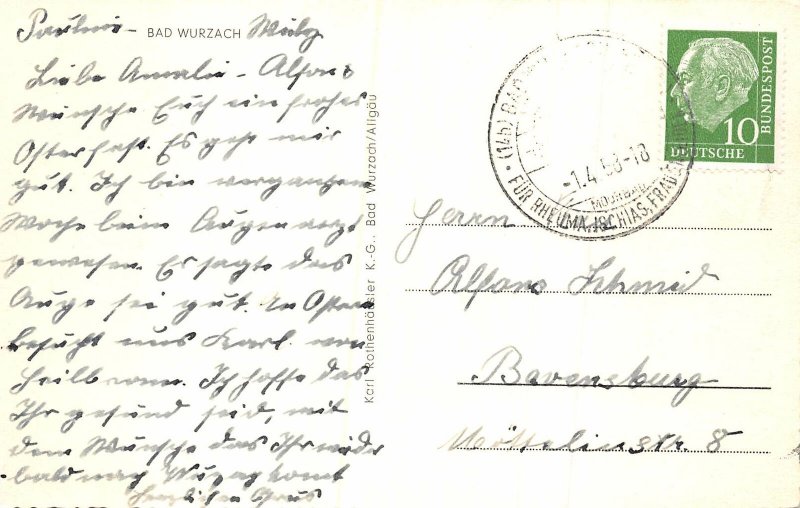 Pauline - BAD WURZACH
Liebe Amalie - Alfons
Wünsche Euch ein frohes
Osterfest. Es geht mir
gut. Ich bin vergangene
Woche beim Augenarzt
gewesen. Er sagte das
Auge sei gut. In Ostern
besucht uns Karl. von
Heilbronn. Ich hoffe das
Ihr gesund seid, mit
dem Wunsche das Ihr wieder
bald nach Wurzach komt
Herzlichen Grus
Karl Rothenhäusler K.-G., Bad Wurzach/Allgäu
(14b) BAD
-1.4.58-18
MOORBAD
FÜR RHEUMA, ISCHIAS, FRAUEN
DEUTSCHE
BUNDESPOST
10
Herrn
Alfons Schmid
Ravensburg
Möttelinstr. 8